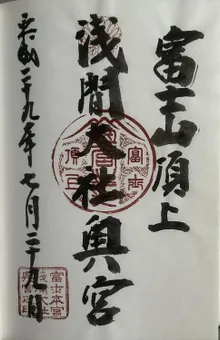 富士山頂上
浅間大社奥宮
平成二十九年七月二十九日
富士本宮